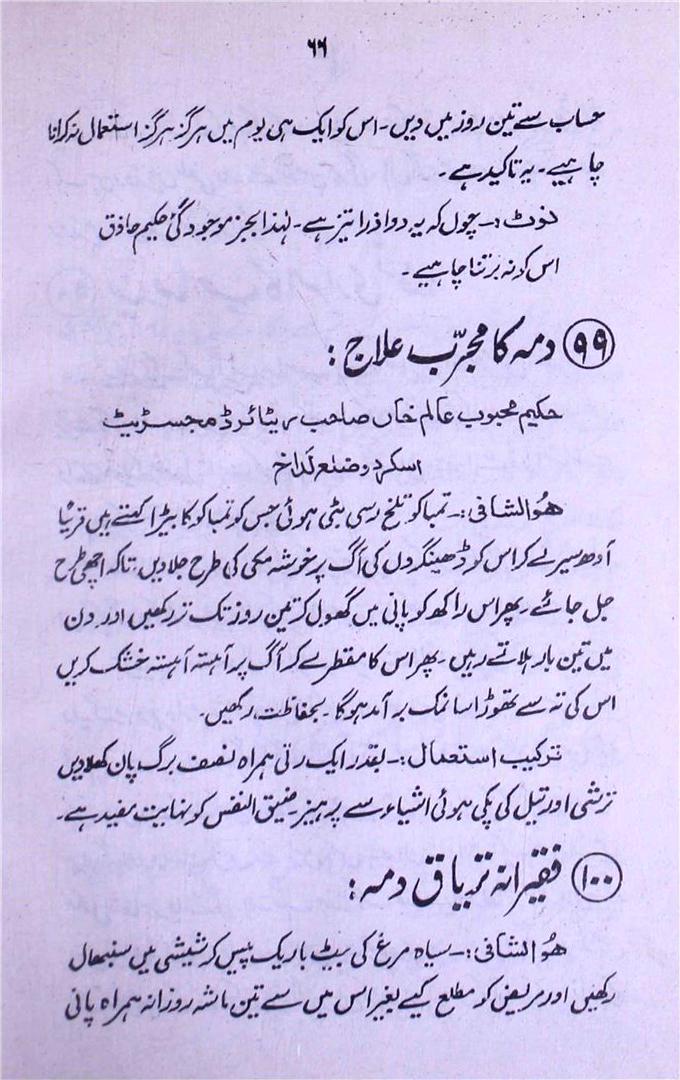 ۶۶
حساب سے تین روز میں دیں۔ اس کو ایک ہی یوم میں ہرگز ہرگز استعمال نہ کرانا
چاہیے۔ یہ تاکید ہے۔
نوٹ :۔ چوں کہ یہ دوا ذرا تیز ہے۔ لہٰذا بجز موجودگئ حکیم حاذق
اس کو نہ برتنا چاہیے۔
۹۹ دمہ کا مجرّب علاج :
حکیم محبوب عالم خاں صاحب ریٹائرڈ مجسڑیٹ
اسکردو ضلع لداخ
ھُوالشافی :۔ تمباکو تلخ رسی بٹی ہوئی جس کو تمباکو کا بیڑا کہتے ہیں قریباً
آدھ سیر لے کر اس کو ڈھینگروں کی آگ پر خوشہ مکی کی طرح جلا دیں، تاکہ اچھی طرح
جل جائے۔ پھر اس راکھ کو پانی میں گھول کر تین روز تک تر رکھیں اور دن
میں تین بار ہلاتے رہیں۔ پھر اس کا مقطر لے کر آگ پر آہستہ آہستہ خشک کریں
اس کی تہ سے تھوڑا سا نمک برآمد ہوگا۔ بحفاظت رکھیں۔
ترکیب استعمال :۔ بقدر ایک رتی ہمراہ نصف برگ پان کھلا دیں
ترشی اور تیل کی پکی ہوئی اشیاء سے پرہیز۔ ضیق النفس کو نہایت مفید ہے۔
۱۰۰ فقیرانہ تریاق دمہ :
ھُوالشافی :۔ سیاہ مرغ کی بیٹ باریک پیس کر شیشی میں سنبھال
رکھیں اور مریض کو مطلع کیے بغیر اس میں سے تین ماشہ روزانہ ہمراہ پانی